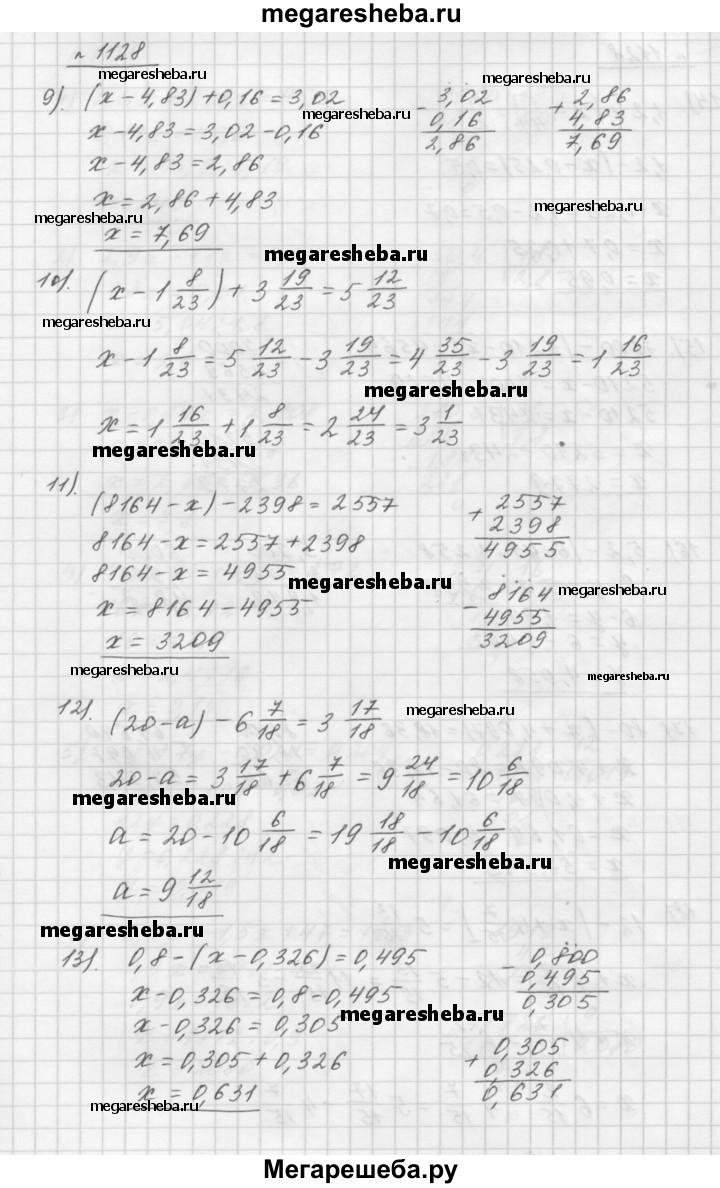 megaresheba.ru
№ 1128
megaresheba.ru
megaresheba.ru
9). (x − 4,83) + 0,16 = 3,02
x − 4,83 = 3,02 − 0,16
x − 4,83 = 2,86
x = 2,86 + 4,83
x = 7,69
− 3,02
0,16
2,86
+ 2,86
4,83
7,69
megaresheba.ru
megaresheba.ru
megaresheba.ru
megaresheba.ru
10). (x − 1 8/23) + 3 19/23 = 5 12/23
megaresheba.ru
x − 1 8/23 = 5 12/23 − 3 19/23 = 4 35/23 − 3 19/23 = 1 16/23
megaresheba.ru
x = 1 16/23 + 1 8/23 = 2 24/23 = 3 1/23
megaresheba.ru
11). (8164 − x) − 2398 = 2557
8164 − x = 2557 + 2398
8164 − x = 4955
x = 8164 − 4955
x = 3209
+ 2557
2398
4955
− 8164
4955
3209
megaresheba.ru
megaresheba.ru
megaresheba.ru
megaresheba.ru
12). (20 − a) − 6 7/18 = 3 17/18
megaresheba.ru
20 − a = 3 17/18 + 6 7/18 = 9 24/18 = 10 6/18
megaresheba.ru
a = 20 − 10 6/18 = 19 18/18 − 10 6/18
megaresheba.ru
a = 9 12/18
megaresheba.ru
13). 0,8 − (x − 0,326) = 0,495
x − 0,326 = 0,8 − 0,495
x − 0,326 = 0,305
x = 0,305 + 0,326
x = 0,631
− 0,800
0,495
0,305
+ 0,305
0,326
0,631
megaresheba.ru
megaresheba.ru
megaresheba.ru
Мегарешеба.ру